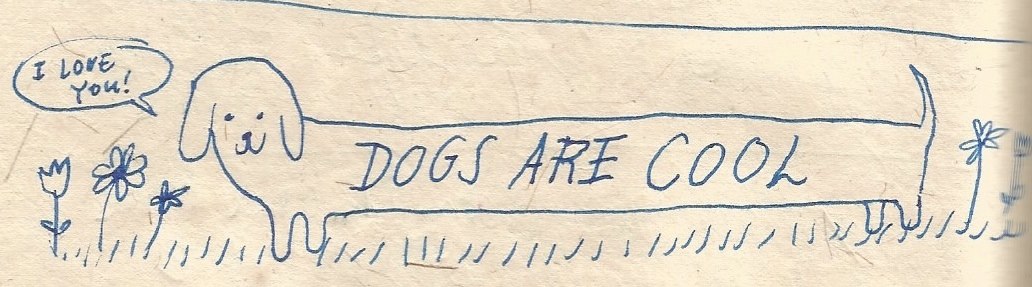 I LOVE
YOU!
DOGS ARE COOL